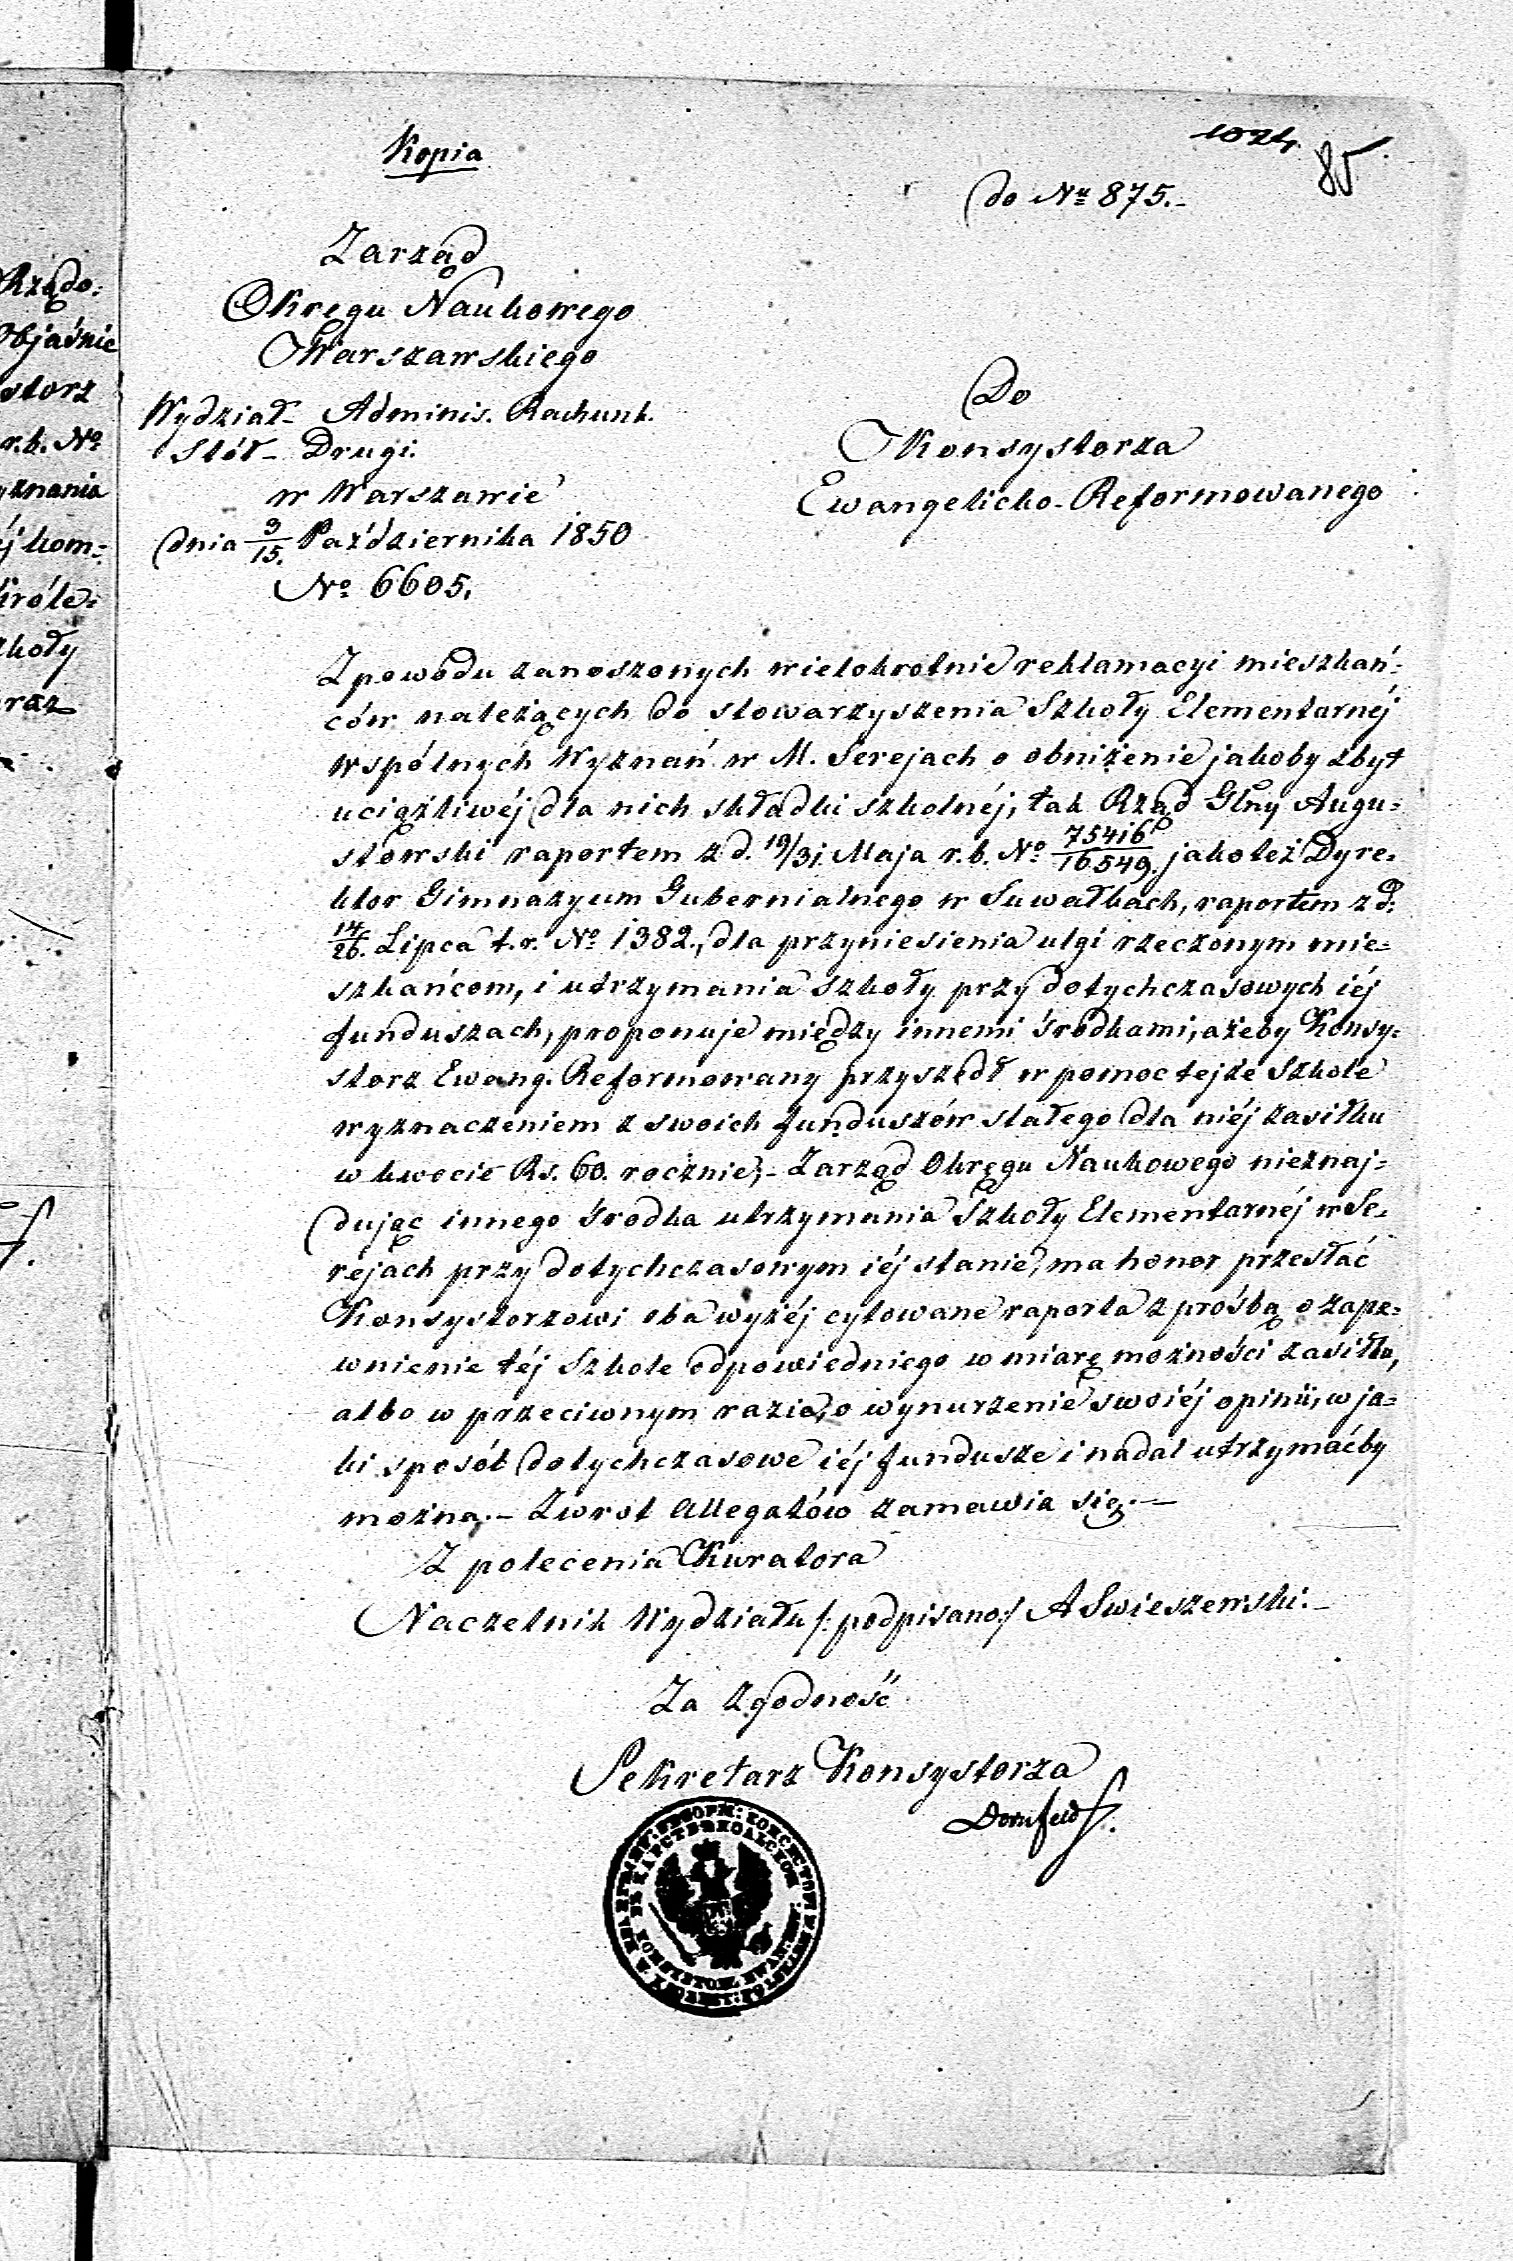 1024.
85
Kopia
do Nr 875.-
Zarząd
Okręgu Naukowego
Warszawskiego
Wydział - Adminis. Rachunk.
Stół - Drugi.
w Warszawie
dnia 3/15. Października 1850
No 6605.
Do
Konsystorza
Ewangelicko-Reformowanego
Z powodu zanoszonych wielokrotnie reklamacyi mieszkań-
ców należących do stowarzyszenia Szkoły Elementarnéj
wspólnych Wyznań w M. Serejach o obniżenie jakoby zbyt
uciążliwéj dla nich składki szkolnéj, tak Rząd Glny Augu-
stowski raportem z d. 19/31. Maja r.b. No 75416/16549. jakoteż Dyre-
ktor Gimnazyum Gubernialnego w Suwałkach, raportem z d.
14/26. Lipca t.r. No 1382., dla przyniesienia ulgi rzeczonym mie-
szkańcom, i utrzymania szkoły przy dotychczasowych iéj
funduszach, proponuje między innemi środkami, ażeby Konsy-
storz Ewang. Reformowany przyszedł w pomoc tejże Szkole
wyznaczeniem z swoich funduszów stałego dla niéj zasiłku
w kwocie Rs. 60. rocznie;- Zarząd Okręgu Naukowego nieznaj-
dując innego środka utrzymania Szkoły Elementarnéj w Se-
rejach przy dotychczasowym iéj stanie, ma honor przesłać
Konsystorzowi oba wyżéj cytowane raporta z prośbą o zape-
wnienie téj Szkole odpowiedniego w miarę możności zasiłku,
albo w przeciwnym razie, o wynurzenie swoiéj opinii, w ja-
ki sposób dotychczasowe iéj fundusze i nadal utrzymaćby
można.- Zwrot Allegatów zamawia się.-
Z polecenia Kuratora
Naczelnik Wydziału /: podpisano:/ A Swieszewski.-
Za zgodność
Sekretarz Konsystorza
Dornfeld
Rządo-
Objaśnie
storz
r.b. No
yznania
éj kom-
Króle-
zkoły
oraz